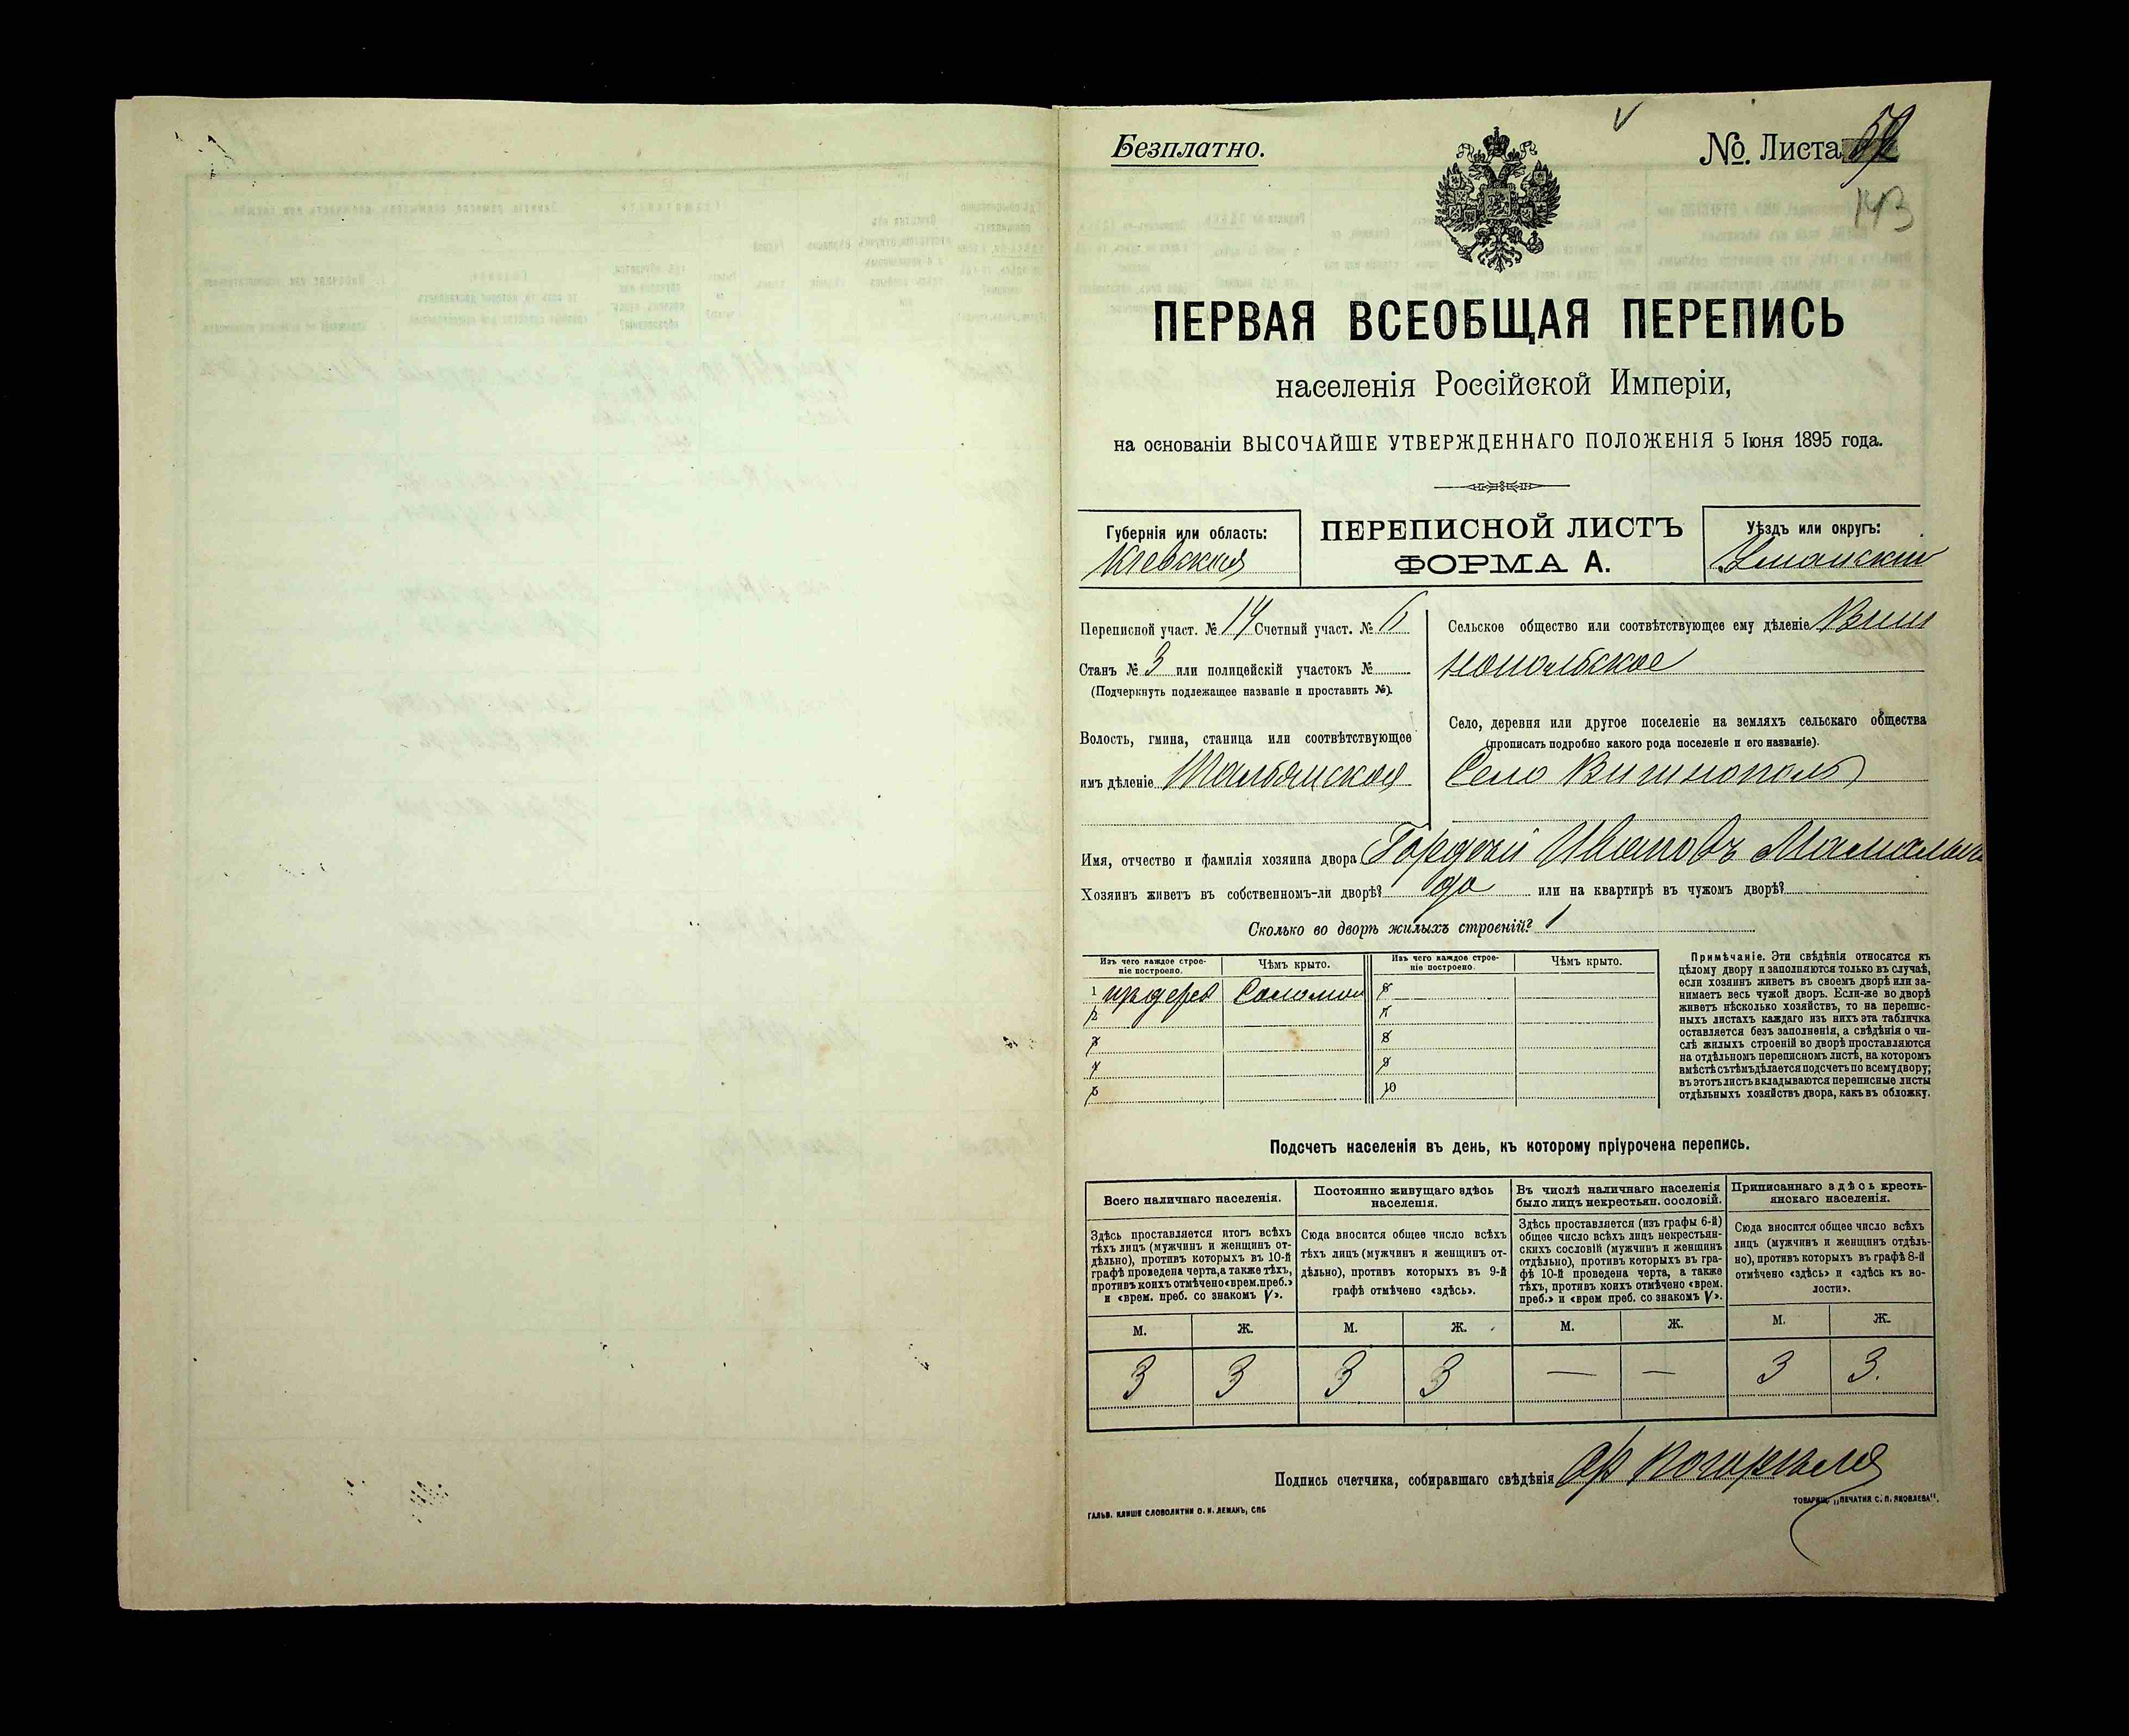 Безплатно.
№ Листа
143
ПЕРВАЯ ВСЕОБЩАЯ ПЕРЕПИСЬ
населенія Россійской Имперіи,
на основаніи ВЫСОЧАЙШЕ УТВЕРЖДЕННАГО ПОЛОЖЕНІЯ 5 Іюня 1895 года.
Губернія или область:
Кіевская
ПЕРЕПИСНОЙ ЛИСТЪ
ФОРМА А.
Уѣздъ или округъ:
Уманскій
Переписной участ. № 14 Счетный участ. №
Станъ № 3 или полицейскій участокъ №
(Подчеркнуть подлежащее названіе и проставить №).
Волость, гмина, станица или соотвѣтствующее
имъ дѣленіе
Сельское общество или соотвѣтствующее ему дѣленіе Виш
нопольское
Село, деревня или другое поселеніе на земляхъ сельскаго общества
(прописать подробно какого рода поселеніе и его названіе).
Село Вишнополь
Имя, отчество и фамилія хозяина двора Гордѣй Ивановъ
Хозяинъ живетъ въ собственномъ-ли дворѣ? да или на квартирѣ въ чужомъ дворѣ?
Сколько во дворѣ жилыхъ строеній? 1
Изъ чего каждое строе-
ніе построено.
Чѣмъ крыто.
Изъ чего каждое строе-
ніе построено.
Чѣмъ крыто.
1 изъ дерев Соломой
2
3
4
5
6
7
8
9
10
Примѣчаніе. Эти свѣдѣнія относятся къ
цѣлому двору и заполняются только въ случаѣ,
если хозяинъ живетъ въ своемъ дворѣ или за-
нимаетъ весь чужой дворъ. Если-же во дворѣ
живетъ нѣсколько хозяйствъ, то на перепис-
ныхъ листахъ каждаго изъ нихъ эта табличка
оставляется безъ заполненія, а свѣдѣнія о чи-
слѣ жилыхъ строеній во дворѣ проставляются
на отдѣльномъ переписномъ листѣ, на которомъ
вмѣстѣ съ тѣмъ дѣлается подсчетъ по всему двору;
въ этотъ листъ вкладываются переписные листы
отдѣльныхъ хозяйствъ двора, какъ въ обложку.
Подсчетъ населенія въ день, къ которому пріурочена перепись.
Всего наличнаго населенія.
Здѣсь проставляется итогъ всѣхъ
тѣхъ лицъ (мужчинъ и женщинъ от-
дѣльно), противъ которыхъ въ 10-й
графѣ проведена черта, а также тѣхъ,
противъ коихъ отмѣчено «врем. преб.»
и «врем. преб. со знакомъ V».
Постоянно живущаго здѣсь
населенія.
Сюда вносится общее число всѣхъ
тѣхъ лицъ (мужчинъ и женщинъ от-
дѣльно), противъ которыхъ въ 9-й
графѣ отмѣчено «здѣсь».
Въ числѣ наличнаго населенія
было лицъ некрестьян. сословій.
Здѣсь проставляется (изъ графы 6-й)
общее число всѣхъ лицъ некрестьян-
скихъ сословій (мужчинъ и женщинъ
отдѣльно), противъ которыхъ въ гра-
фѣ 10-й проведена черта, а также
тѣхъ, противъ коихъ отмѣчено «врем.
преб.» и «врем преб. со знакомъ V».
Приписаннаго здѣсь кресть-
янскаго населенія.
Сюда вносится общее число всѣхъ
лицъ (мужчинъ и женщинъ отдѣль-
но), противъ которыхъ въ графѣ 8-й
отмѣчено «здѣсь» и «здѣсь къ во-
лости».
М. Ж. М. Ж. М. Ж. М. Ж.
3 3 3 3 — — 3 3.
Подпись счетчика, собиравшаго свѣдѣнія
ГАЛЬВ. КЛИШЕ СЛОВОЛИТНИ О. И. ЛЕМАНЪ, СПБ
ТОВАРИЩ. „ПЕЧАТНЯ С. П. ЯКОВЛЕВА“.